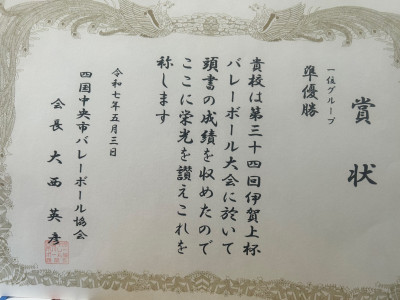 賞状
一位グループ
準優勝
貴校は第三十四回伊賀上杯
バレーボール大会に於いて
頭書の成績を収めたので
ここに栄光を讃えこれを
称します
令和七年五月三日
四国中央市バレーボール協会
会長 大西英彦